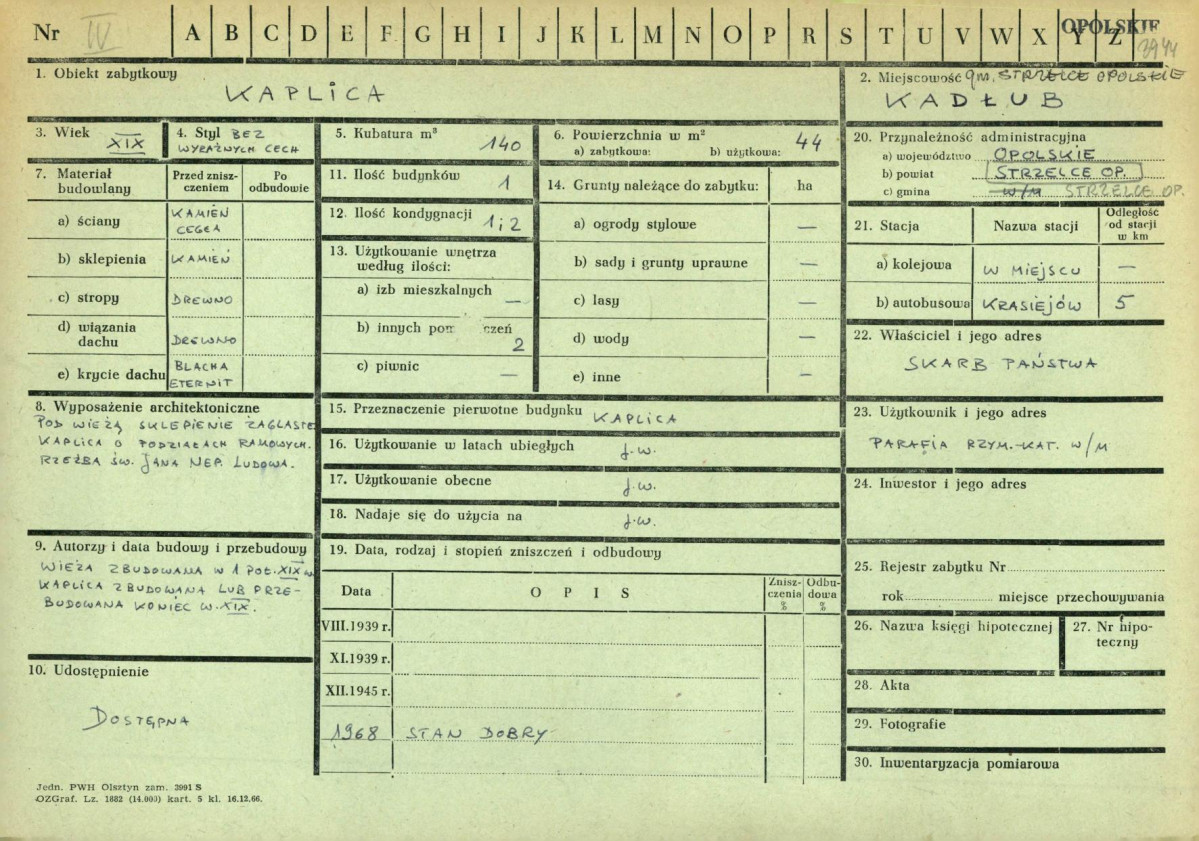 Nr IV A B C D E F G H I J K L M N O P R S T U V W X Y Z OPOLSKIE 3944
1. Obiekt zabytkowy
KAPLICA
2. Miejscowość gm. STRZELCE OPOLSKIE
KADŁUB
3. Wiek XIX
4. Styl BEZ
WYRAŹNYCH CECH
5. Kubatura m³ 140
6. Powierzchnia w m² 44
a) zabytkowa: b) użytkowa:
7. Materiał budowlany
Przed zniszczeniem
Po odbudowie
a) ściany KAMIEŃ
CEGŁA
b) sklepienia KAMIEŃ
c) stropy DREWNO
d) wiązania dachu DREWNO
e) krycie dachu BLACHA
ETERNIT
8. Wyposażenie architektoniczne
POD WIEŻĄ SKLEPIENIE ŻAGLASTE
KAPLICA O PODZIAŁACH RAMOWYCH.
RZEŹBA ŚW. JANA NEP. LUDOWA.
9. Autorzy i data budowy i przebudowy
WIEŻA ZBUDOWANA W 1 POŁ. XIX w
KAPLICA ZBUDOWANA LUB PRZE-
BUDOWANA KONIEC W. XIX.
10. Udostępnienie
DOSTĘPNA
11. Ilość budynków 1
12. Ilość kondygnacji 1 i 2
13. Użytkowanie wnętrza
według ilości:
a) izb mieszkalnych —
b) innych pom czeń 2
c) piwnic —
14. Grunty należące do zabytku: ha
a) ogrody stylowe —
b) sady i grunty uprawne —
c) lasy —
d) wody —
e) inne —
15. Przeznaczenie pierwotne budynku KAPLICA
16. Użytkowanie w latach ubiegłych j.w.
17. Użytkowanie obecne j.w.
18. Nadaje się do użycia na j.w.
19. Data, rodzaj i stopień zniszczeń i odbudowy
Data OPIS Zniszczenia % Odbudowa %
VIII.1939 r.
XI.1939 r.
XII.1945 r.
1968 STAN DOBRY
20. Przynależność administracyjna
a) województwo OPOLSKIE
b) powiat STRZELCE OP.
c) gmina w/M STRZELCE OP.
21. Stacja Nazwa stacji Odległość od stacji w km
a) kolejowa W MIEJSCU —
b) autobusowa KRASIEJÓW 5
22. Właściciel i jego adres
SKARB PAŃSTWA
23. Użytkownik i jego adres
PARAFIA RZYM.-KAT. W/M
24. Inwestor i jego adres
25. Rejestr zabytku Nr
rok miejsce przechowywania
26. Nazwa księgi hipotecznej
27. Nr hipo-
teczny
28. Akta
29. Fotografie
30. Inwentaryzacja pomiarowa
Jedn. PWH Olsztyn zam. 3991 S
OZGraf. Lz. 1882 (14.000) kart. 5 kl. 16.12.66.